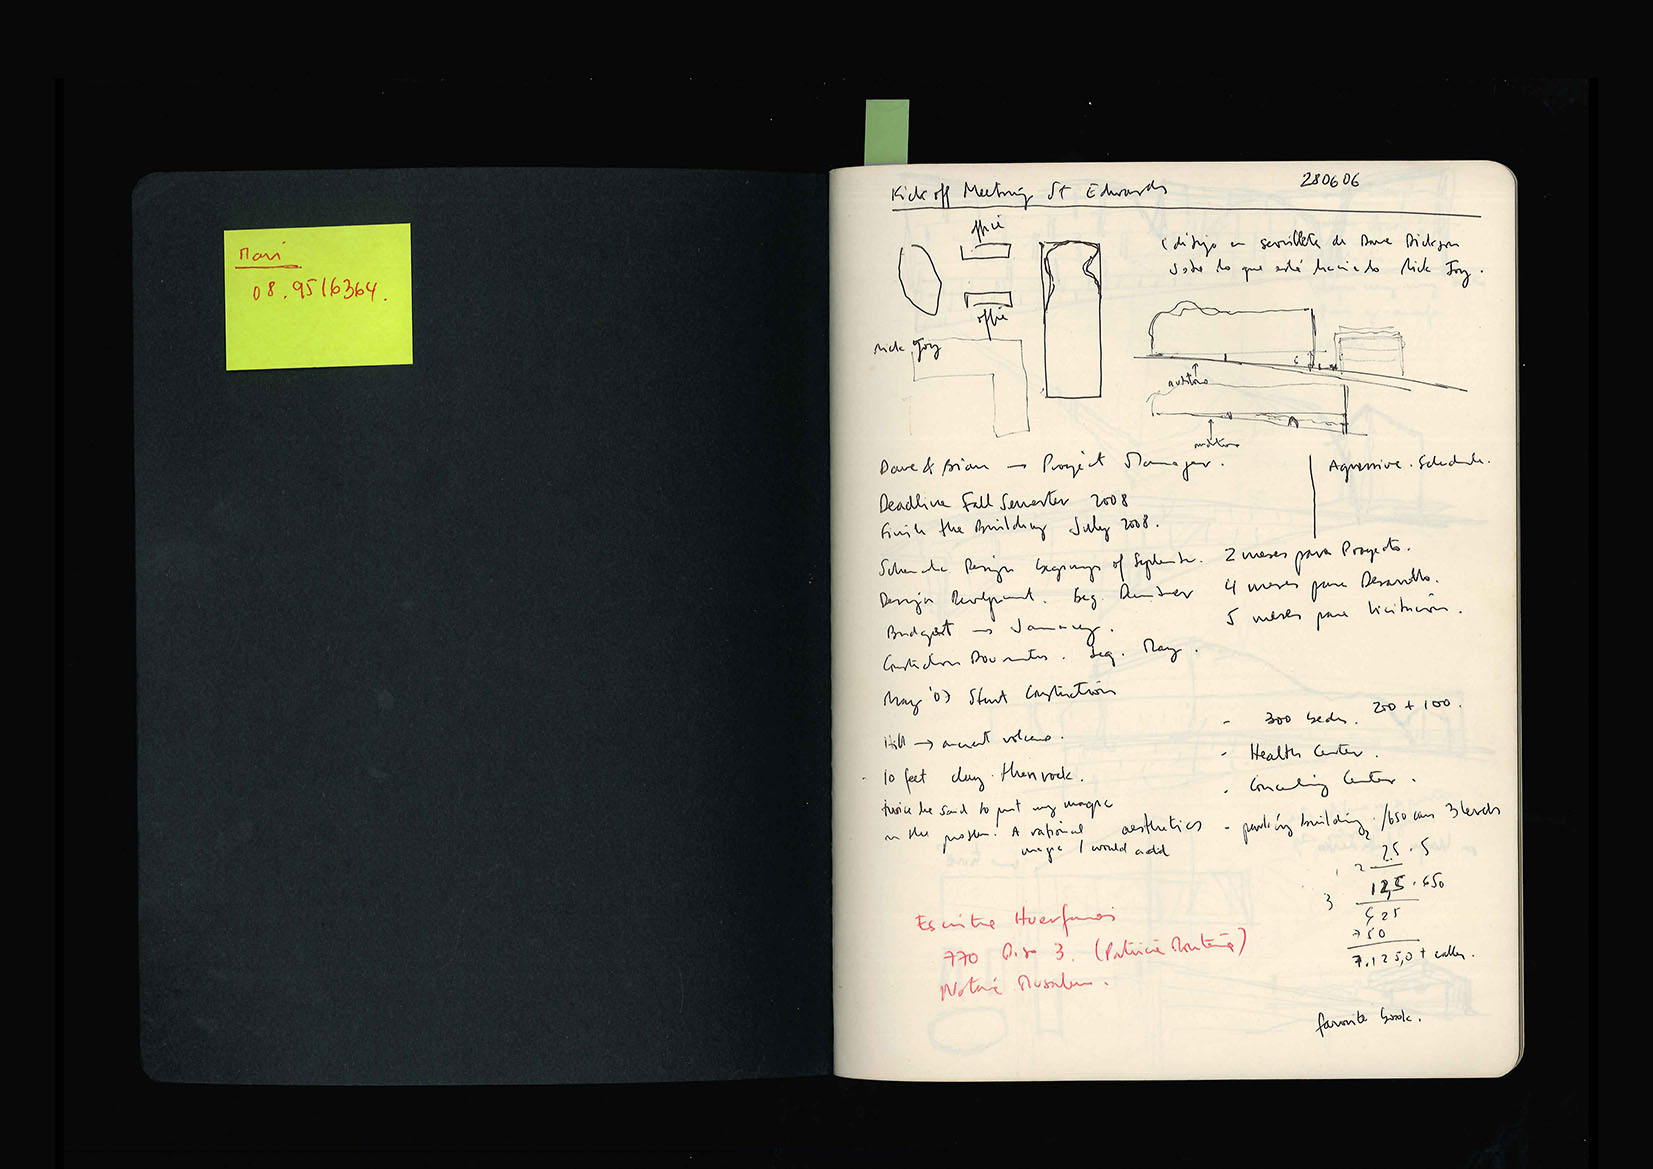 Mari
08.9516364.
Kick off Meeting St Edwards
280606
office
office
Rick Joy
(dibujo en servilleta de Dave Dickson
sobre lo que está haciendo Rick Joy.
auditorio
auditorio
Dave & Brian → Project Manager.
Agressive. Schedule.
Deadline Fall Semester 2008
Finish the Building July 2008.
Schematic Design beginings of September. 2 meses para Proyecto.
Design Development. beg. December 4 meses para Desarrollo.
Budget → January. 5 meses para licitación.
Construction Documents. beg. May.
May '07 Start Construction
Hill → ancient volcano.
10 feet clay. then rock.
twice he said to put my magic
in the project. A rational aesthetics
magic I would add
- 300 beds. 200 + 100.
- Health Center.
- Counceling Center.
- parking building, /650 cars 3 levels
2 25.5
3 12,5.650
625
750
7.125,0 + calles.
Huerfanos
770 Piso 3. (Patricia)
Notaría Musalem.
favorite book.